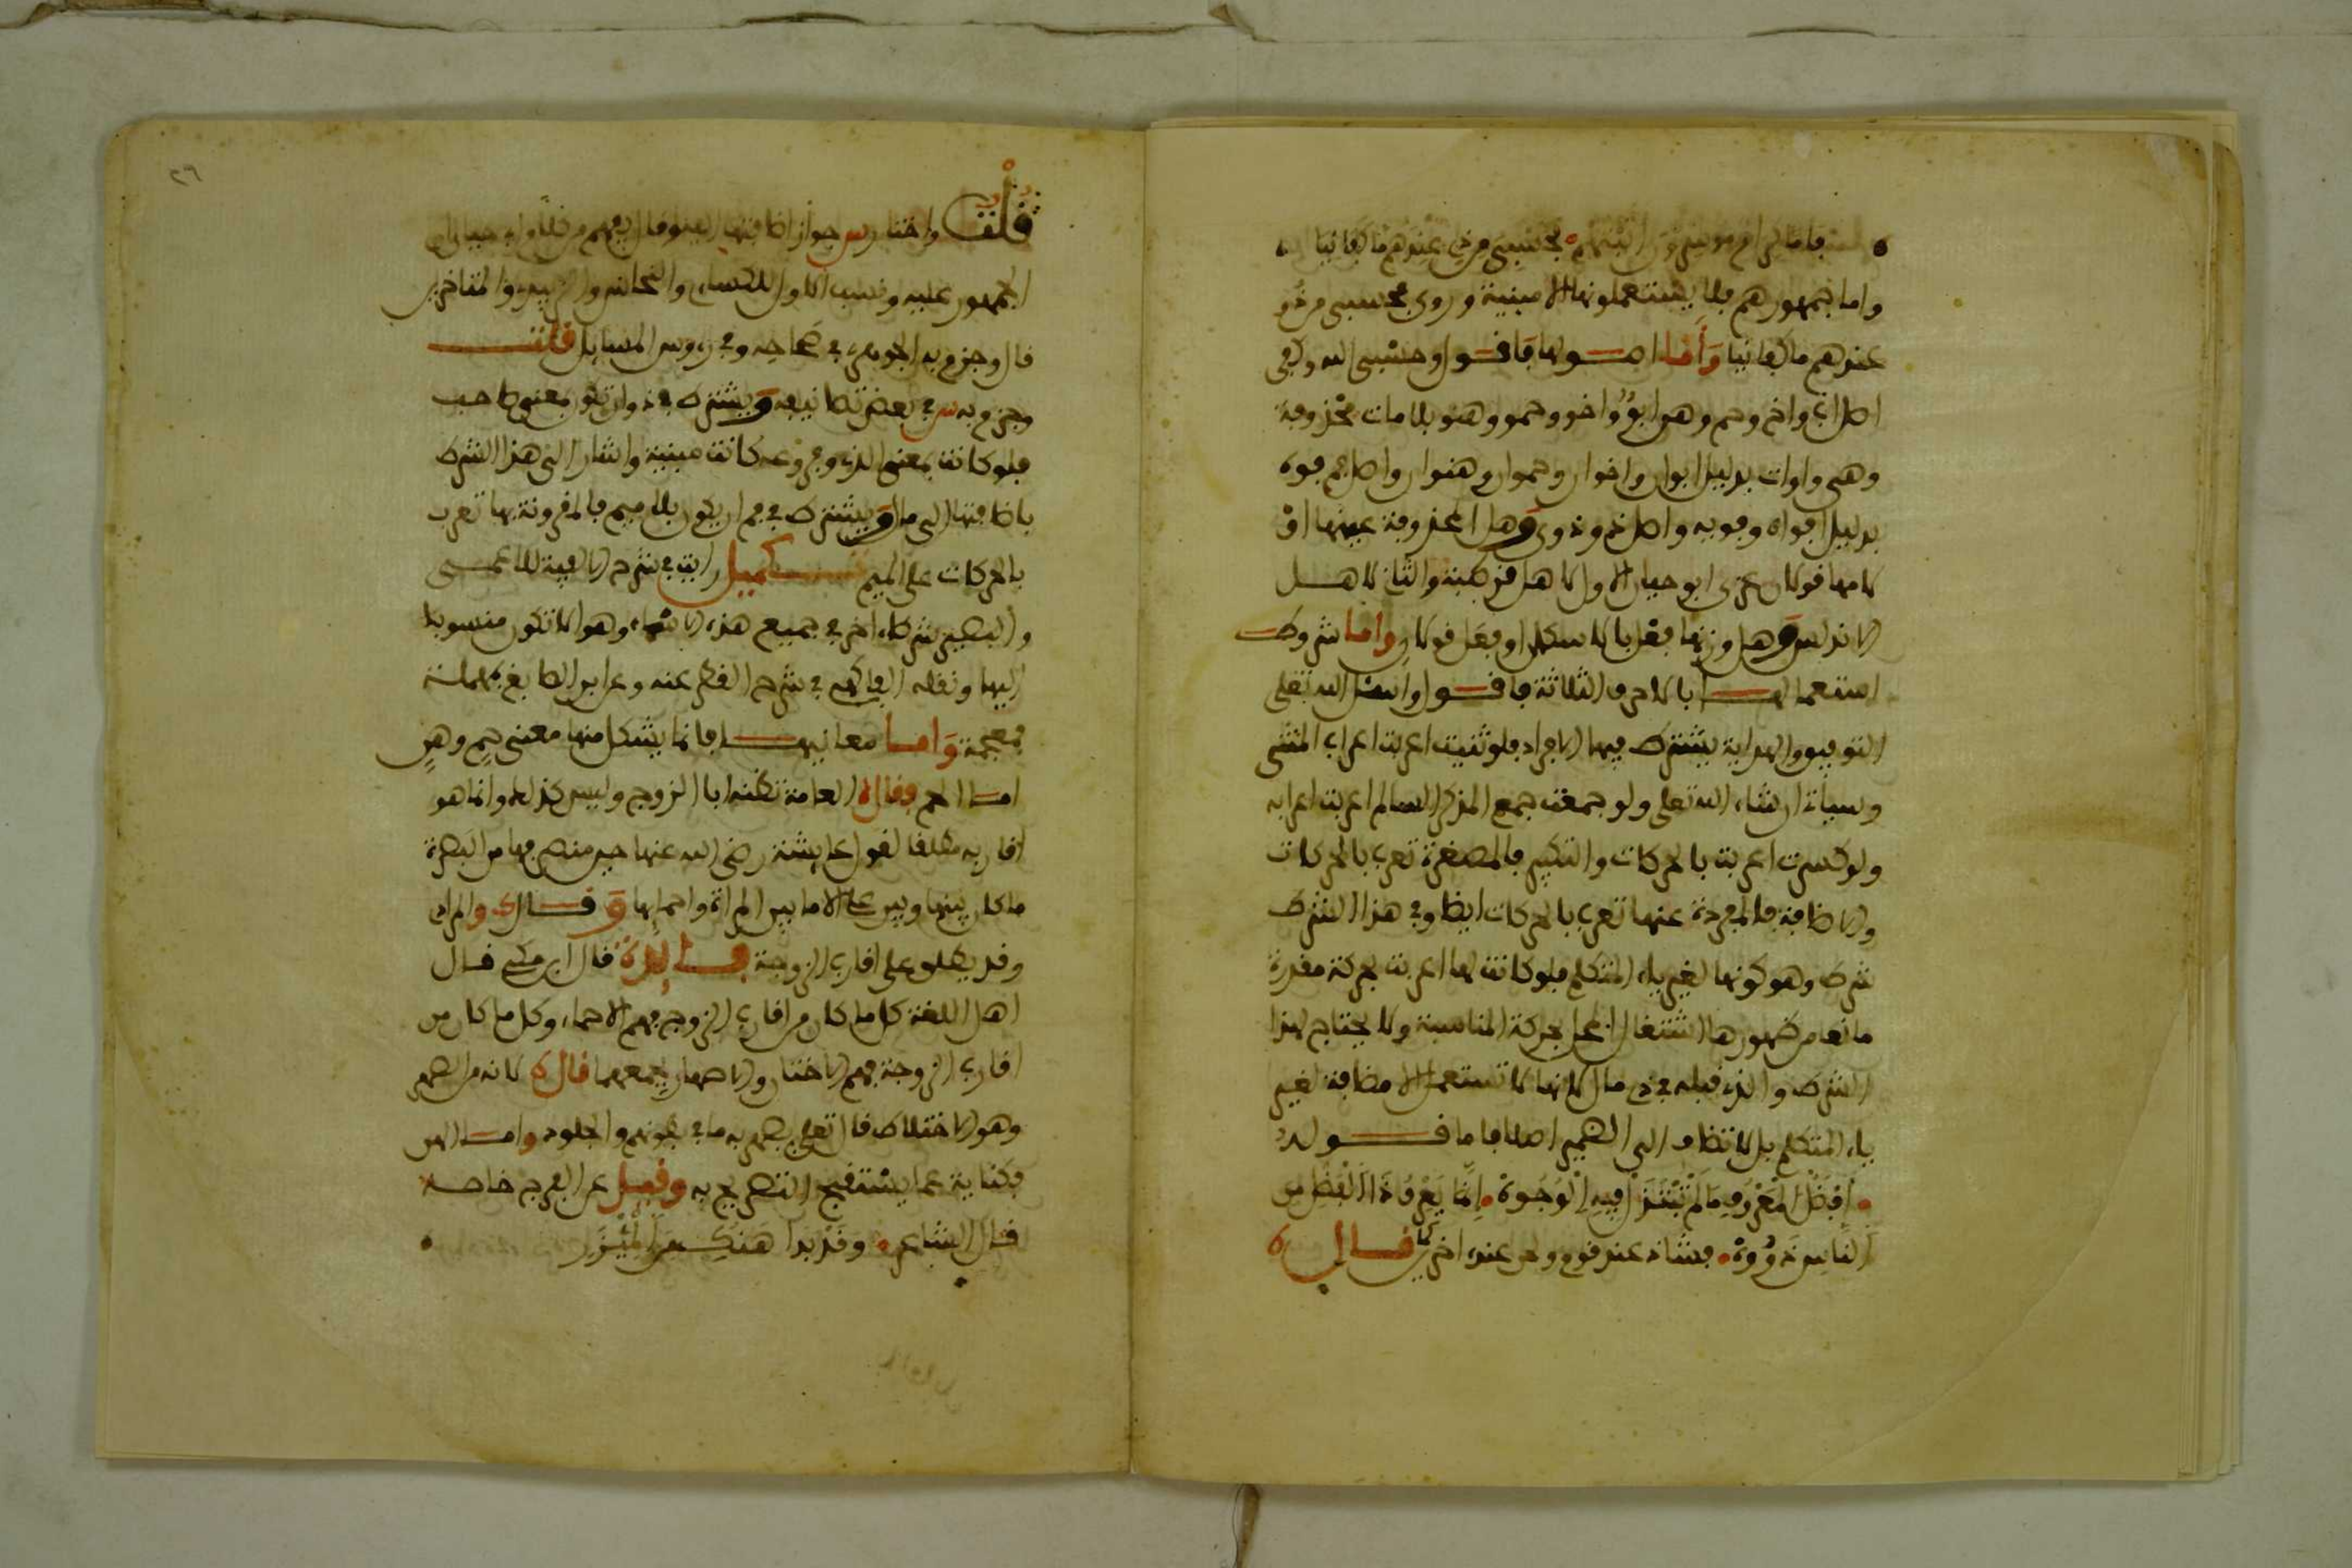 فاما كرام موسرون اتيتهم فحسبي من ذي عندهم ما كفانيا
واما جمهورهم فلا يستعملونها الا مبنية وروى فحسبي من ذو
عندهم ما كفانيا وأما اصولها فاقول وحسبي الله وكفى
اصل اب واخ وحم وهن ابو واخو وحمو وهنو بلامات محذوفة
وهي واوات بدليل ابوان واخوان وحموان وهنوان واصل فم فوه
بدليل افواه وفويه واصل ذو ذوى وهل المحذوفة عينها او
لامها قولان عزى ابو حيان الاول لاهل قرطبة والثاني لاهل
الاندلس وهل وزنها فعل بالاسكان او فعل قولان واما شروط
استعمالها بالاحرف الثلاثة فاقول واسئل الله تعلى
التوفيق والهداية يشترط فيها الافراد فلو ثنيت اعربت اعراب المثنى
وسياتي ان شاء الله تعلى ولو جمعت جمع المذكر السالم اعربت اعرابه
ولو كسرت اعربت بالحركات والتكبير فالمصغرة تعرب بالحركات
والاضافة فالمفردة عنها تعرب بالحركات ايضا وفي هذا الشرط
شرط وهو كونها لغير ياء المتكلم فلو كانت لها اعربت بحركة مقدرة
مانعا من ظهورها اشتغال المحل بحركة المناسبة ولا يحتاج لهذا
الشرط والذي قبله في ذي مال لانها لا تستعمل الا مضافة لغير
ياء المتكلم بل لا تضاف الى الضمير اصلا فاما قوله
أفضل المعروف ما لم تبتذل فيه الوجوه إنما يعرف ذا الفضل من
الناس ذووه فشاذ عند قوم ولحن عند اخرين قال
قلت واختار س جواز اضافتها
الجمهور عليه ونسب الاول للكساي والنحاس والزبيدي والمتاخرين
قال وجزم به الجوهري في صحاحه وفي رءوس المسايل قلت
وجزم به س في بعض تصانيفه ويشترط في ذو ان تكون بمعنى صاحب
فلو كانت بمعنى الذي وفروعه كانت مبنية واشار الى هذا الشرط
باضافتها الى مال ويشترط في فم ان يكون بلا ميم فالمقرونة بها تعرب
بالحركات على الميم تكميل رايت في شرح الالفية للاعمى
والبصير شرطا اخر في جميع هذه الاسماء وهو الا تكون منسوبا
اليها ونقله الفاكهي في شرح القطر عنه وعن ابن الصايغ بمهملة
فمعجمة وأما معانيها فانما يشكل منها معنى حم وهن
اما الحم فقال العامة تظنه ابا الزوج وليس كذلك وانما هو
اقاربه مطلقا لقول عايشة رضي الله عنها حين منصرفها من البصرة
ما كان بيني وبين علي الا ما بين المراة واحمايها وقال والمرادي
وقد يطلق على اقارب الزوجة فايدة قال ابن مكي قال
اهل اللغة كل ما كان من اقارب الزوج فهم الاحماء وكل ما كان من
اقارب الزوجة فهم الاختان والاصهار يجمعهما قال لانه من الصهر
وهو الاختلاط قال تعلى يصهر به ما في بطونهم والجلود واما الهن
فكناية عما يستقبح التصريح به وقيل عن الفرج خاصة
قال الشاعر وقد بدا هنك من المئزر
٢٦